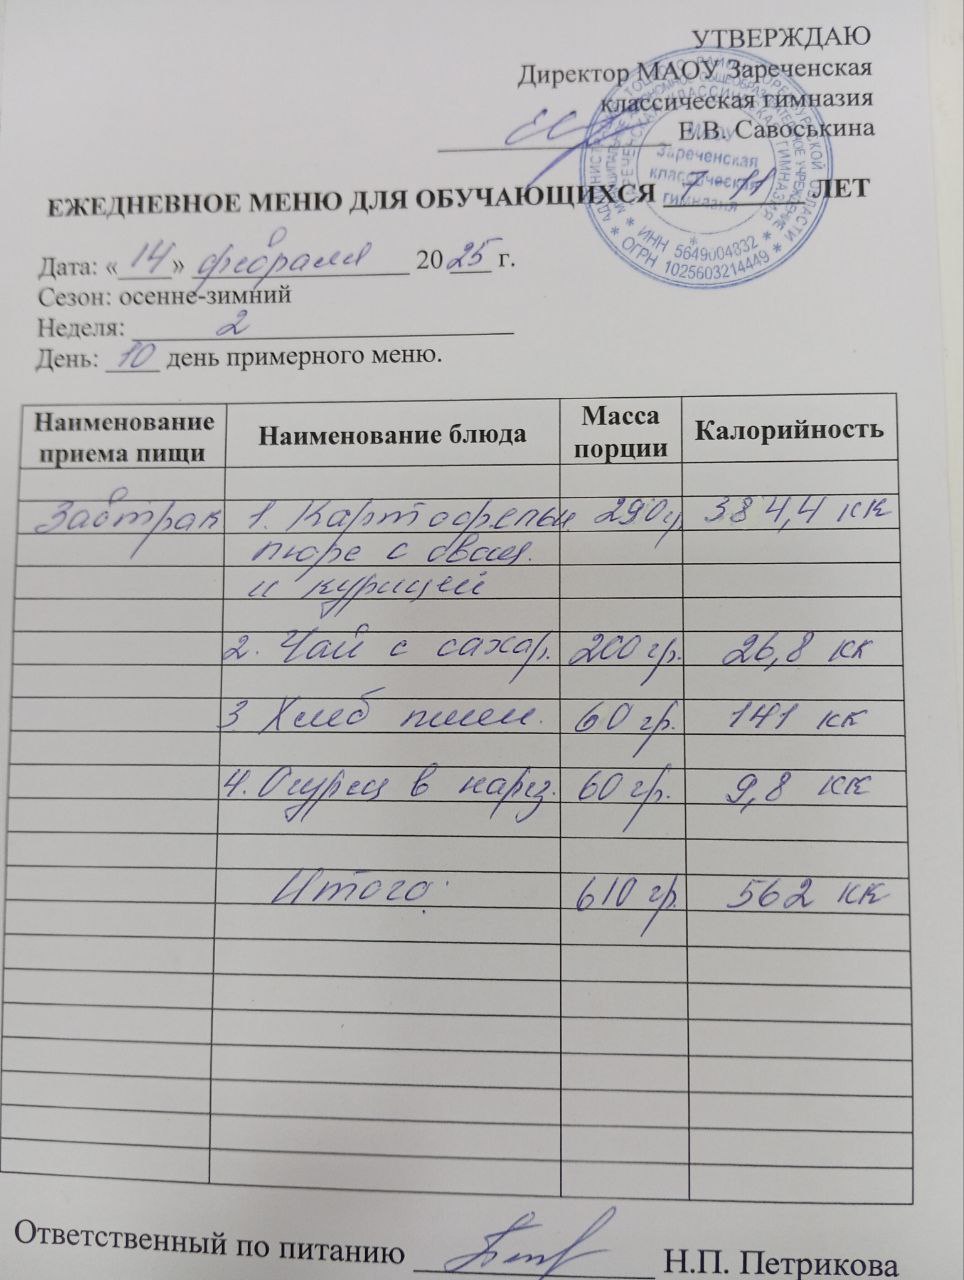 УТВЕРЖДАЮ
Директор МАОУ Зареченская
классическая гимназия
Е.В. Савоськина
МАОУ
Зареченская
классическая
гимназия
* ИНН 5649004832 *
* ОГРН 1025603214449 *
ЕЖЕДНЕВНОЕ МЕНЮ ДЛЯ ОБУЧАЮЩИХСЯ 7-11 ЛЕТ
Дата: «14» февраля 2025 г.
Сезон: осенне-зимний
Неделя: 2
День: 10 день примерного меню.
Наименование приема пищи Наименование блюда Масса порции Калорийность
Завтрак 1. Картофельн. 290 гр. 384,4 кк
пюре с овощ.
и курицей
2. Чай с сахар. 200 гр. 26,8 кк
3 Хлеб пшен. 60 гр. 141 кк
4. Огурец в нарез. 60 гр. 9,8 кк
Итого 610 гр. 562 кк
Ответственный по питанию Н.П. Петрикова